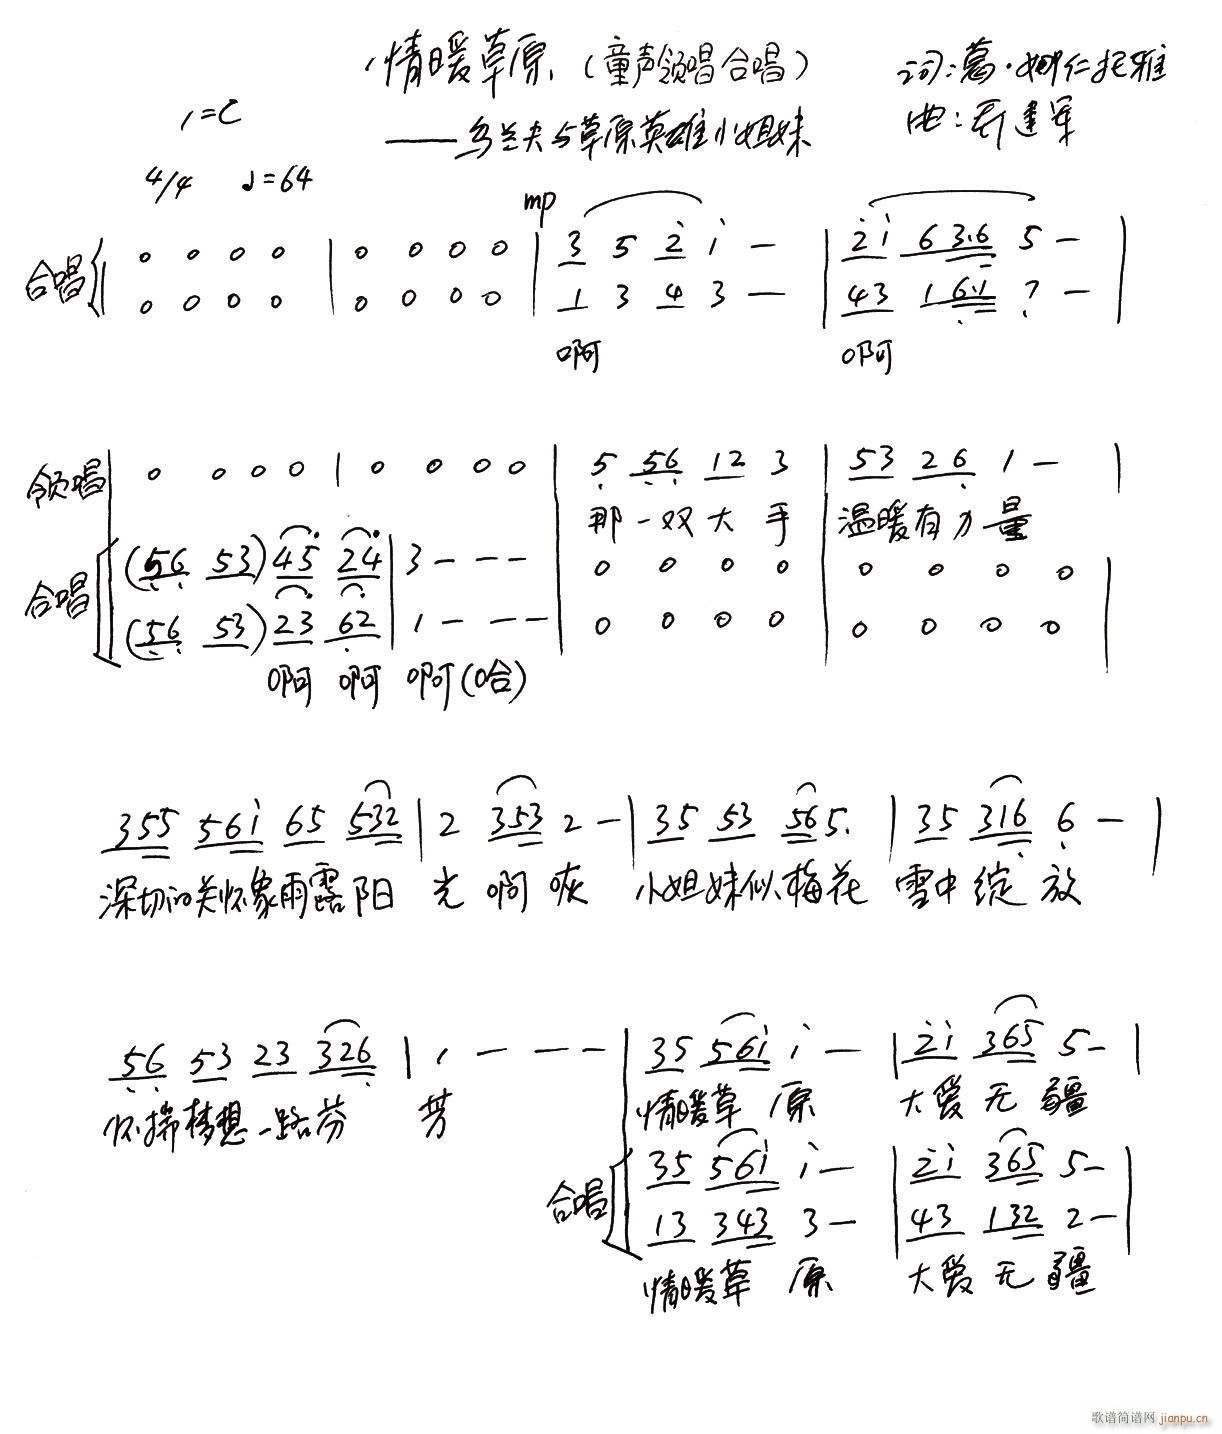 情暖草原 (童声领唱合唱)
词:葛·娜仁托雅
1=C
——乌兰夫与草原英雄小姐妹
曲: 建军
4/4 ♩=64
mp
合唱
0 0 0 0 | 0 0 0 0 | 3 5 2 1 — | 2 1 6 3.6 5 — |
0 0 0 0 | 0 0 0 0 | 1 3 4 3 — | 4 3 1 6.1 7 — |
啊 啊
领唱 0 0 0 0 | 0 0 0 0 | 5 56 12 3 | 53 26 1 — |
那一双大手 温暖有力量
合唱
(56 53) 45 24 | 3 — — — | 0 0 0 0 | 0 0 0 0 |
(56 53) 23 62 | 1 — — — | 0 0 0 0 | 0 0 0 0 |
啊 啊 啊(哈)
355 561 65 532 | 2 353 2 — | 35 53 56 5. | 35 316 6 — |
深切的关怀象雨露阳 光啊 小姐妹似梅花 雪中绽放
56 53 23 326 | 1 — — — | 35 561 1 — | 21 365 5 — |
怀揣梦想一路芬 芳 情暖草原 大爱无疆
合唱
35 561 1 — | 21 365 5 — |
13 343 3 — | 43 132 2 — |
情暖草原 大爱无疆
歌谱简谱网 jianpu.cn